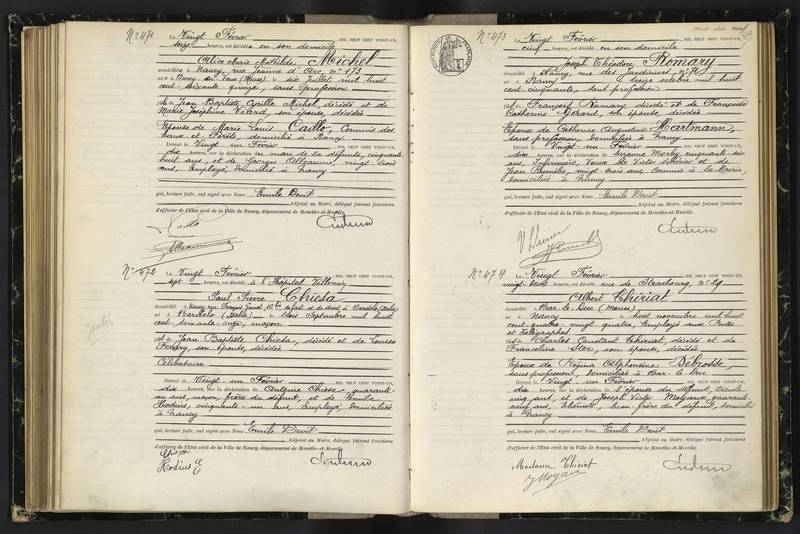 N° 471 Le Vingt Février MIL NEUF CENT VINGT-UN,
seize heures, est décédée en son domicile
Alice Marie Mathilde Michel
domiciliée à Nancy, rue Jeanne d'Arc, n° 173
née à (Meuse) le six Juillet mil huit
cent soixante quinze, sans profession
fille de Jean Baptiste Cyrille Michel, décédé et de
Marie Joséphine Vilard, son épouse, décédée
Epouse de Marie Louis Caillo, Commis des
Ponts et domicilié à Nancy
Dressé le Vingt un Février MIL NEUF CENT VINGT-UN,
dix heures, sur la déclaration du mari de la défunte, cinquante
huit ans, et de Georges Alleaume, vingt trois
ans, employé, domiciliés à Nancy
qui, lecture faite, ont signé avec Nous Emile Devit
Adjoint au Maire, délégué faisant fonctions
d'officier de l'Etat civil de la Ville de Nancy, département de Meurthe-et-Moselle.
Caillo
N° 472 Le Vingt Février MIL NEUF CENT VINGT-UN,
sept heures, est décédé à l'Hôpital Villemin
Paul Pierre Chiesa
domicilié à Nancy, de fait et de droit à
né à Bardello (Italie) le Septembre mil huit
cent soixante onze, maçon
fils de Jean Baptiste Chiesa, décédé et de Louise
Ferrary, son épouse, décédée
Célibataire
Dressé le Vingt un Février MIL NEUF CENT VINGT-UN,
dix heures, sur la déclaration de Antoine Chiesa, quarante
un ans, maçon, frère du défunt, et de Emile
Hodius, cinquante un ans, employé, domiciliés
à Nancy
qui, lecture faite, ont signé avec Nous Emile Devit
Adjoint au Maire, délégué faisant fonctions
d'officier de l'Etat civil de la Ville de Nancy, département de Meurthe-et-Moselle.
Hodius E
N° 473 Le Vingt Février MIL NEUF CENT VINGT-UN,
cinq heures, est décédé en son domicile
Joseph Théodore Romary
domicilié à Nancy, rue des Jardiniers, n°
né à Nancy le seize octobre mil huit
cent cinquante, sans profession
fils de François Romary, décédé et de Françoise
Catherine Gérard, son épouse, décédée
Epoux de Catherine Augustine Hartmann,
sans profession, domiciliée à Nancy
Dressé le Vingt un Février MIL NEUF CENT VINGT-UN,
dix heures, sur la déclaration de Suzanne cinquante six
ans, Infirmière, Veuve de et de
Jean vingt trois ans, Commis à la Mairie,
domiciliés à Nancy
qui, lecture faite, ont signé avec Nous Emile Devit
Adjoint au Maire, délégué faisant fonctions
d'officier de l'Etat civil de la Ville de Nancy, département de Meurthe-et-Moselle.
N° 474 Le Vingt Février MIL NEUF CENT VINGT-UN,
heures, est décédé rue de Strasbourg, n° 29
Albert Thiriat
domicilié à Bar-le-Duc (Meuse)
né à Nancy le huit novembre mil huit
cent quatre vingt quatre, Employé aux Postes
et Télégraphes
fils de Charles Constant Thiriat, décédé et de
Franceline son épouse, décédée
Epoux de Régina Alphonsine Debrosse,
sans profession, domiciliée à Bar-le-Duc
Dressé le Vingt un Février MIL NEUF CENT VINGT-UN,
dix heures, sur la déclaration de l'épouse du défunt, trente
cinq ans, et de Joseph Victor quarante
neuf ans, Ebéniste, beau-frère du défunt, domicilié
à Nancy
qui, lecture faite, ont signé avec Nous Emile Devit
Adjoint au Maire, délégué faisant fonctions
d'officier de l'Etat civil de la Ville de Nancy, département de Meurthe-et-Moselle.
Madame Thiriat